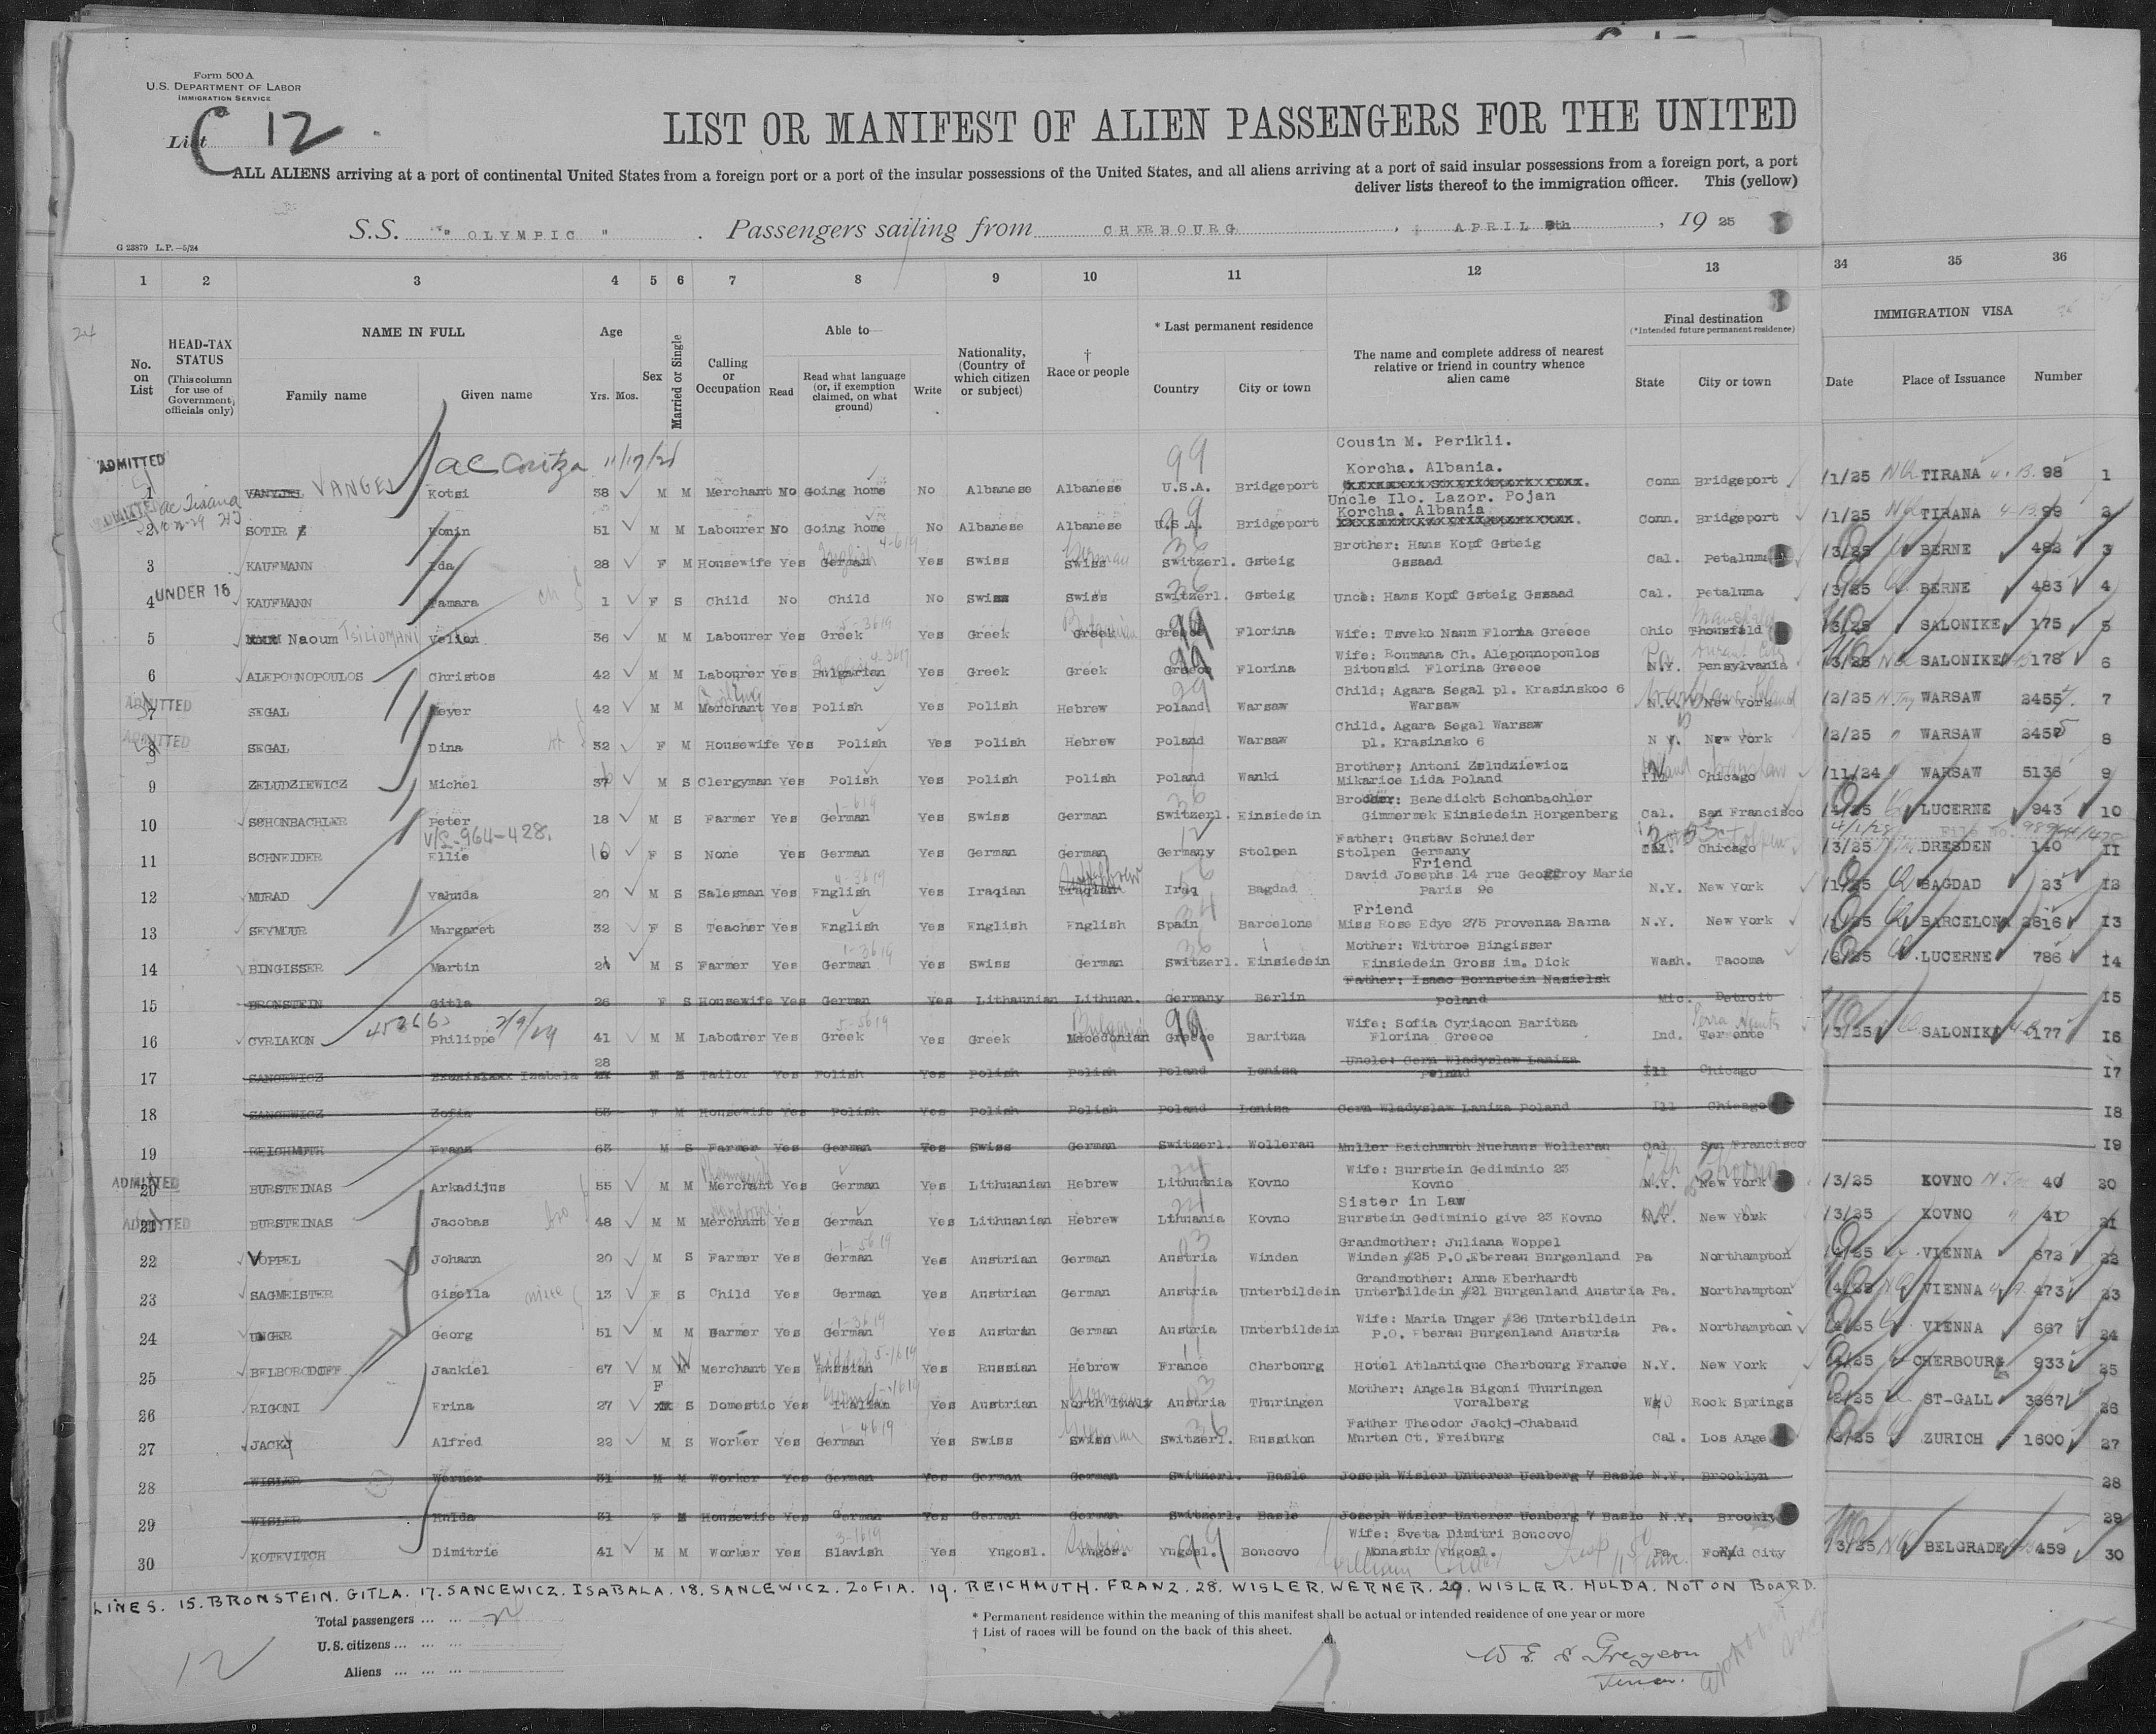 Form 500 A
U.S. DEPARTMENT OF LABOR
IMMIGRATION SERVICE
List C 12
LIST OR MANIFEST OF ALIEN PASSENGERS FOR THE UNITED
ALL ALIENS arriving at a port of continental United States from a foreign port or a port of the insular possessions of the United States, and all aliens arriving at a port of said insular possessions from a foreign port, a port
deliver lists thereof to the immigration officer. This (yellow)
S.S. "OLYMPIC". Passengers sailing from CHERBOURG, APRIL 8th, 1925
G 23879 L.P.—5/24
1 2 3 4 5 6 7 8 9 10 11 12 13 34 35 36
24
No. on List
HEAD-TAX STATUS (This column for use of Government officials only)
NAME IN FULL
Family name Given name
Age Yrs. Mos.
Sex
Married or Single
Calling or Occupation
Able to
Read Read what language (or, if exemption claimed, on what ground) Write
Nationality, (Country of which citizen or subject)
† Race or people
* Last permanent residence
Country City or town
The name and complete address of nearest relative or friend in country whence alien came
Final destination (*Intended future permanent residence)
State City or town
IMMIGRATION VISA
Date Place of Issuance Number
ac Coritza 11/17/21 99 Cousin M. Perikli.
ADMITTED Korcha. Albania.
1 VANGEL Kotsi 38 M M Merchant No Going home No Albanese Albanese U.S.A. Bridgeport Conn Bridgeport /1/25 TIRANA 98 1
ADMITTED ac Tirana Uncle Ilo. Lazor. Pojan
Korcha. Albania
2 SOTIR Konin 51 M M Labourer No Going home No Albanese Albanese U.S.A. Bridgeport Conn. Bridgeport /1/25 TIRANA 99 2
Brother: Hans Kopf Gsteig
3 KAUFMANN Ida 28 F M Housewife Yes German Yes Swiss Swiss Switzerl. Gsteig Gssaad Cal. Petaluma /3/25 BERNE 482 3
UNDER 16
4 KAUFMANN Tamara 1 F S Child No Child No Swiss Swiss Switzerl. Gsteig Unce: Hams Kopf Gsteig Gssaad Cal. Petaluma /3/25 BERNE 483 4
5 Naoum TSILIOMANI Velian 36 M M Labourer Yes Greek Yes Greek Greek Greece Florina Wife: Tsveko Naum Florna Greece Ohio Thousfald /3/25 SALONIKE 175 5
Wife: Roumana Ch. Alepounopoulos
6 ALEPOUNOPOULOS Christos 42 M M Labourer Yes Bulgarian Yes Greek Greek Greece Florina Bitouski Florina Greece N.Y. Pensylvania /3/25 SALONIKE 178 6
ADMITTED Child; Agara Segal pl. Krasinskoc 6
7 SEGAL Meyer 42 M M Merchant Yes Polish Yes Polish Hebrew Poland Warsaw Warsaw N.Y. New York /2/25 WARSAW 2454 7
ADMITTED Child. Agara Segal Warsaw
8 SEGAL Dina 32 F M Housewife Yes Polish Yes Polish Hebrew Poland Warsaw pl. Krasinsko 6 N Y. New York /2/25 WARSAW 2455 8
Brother; Antoni Zeludziewicz
9 ZELUDZIEWICZ Michel 37 M S Clergyman Yes Polish Yes Polish Polish Poland Wanki Mikarice Lida Poland Ill Chicago /11/24 WARSAW 5136 9
Brother: Benedickt Schonbachler
10 SCHONBACHLER Peter 18 M S Farmer Yes German Yes Swiss German Switzerl. Einsiedein Gimmermek Einsiedein Horgenberg Cal. San Francisco /4/25 LUCERNE 943 10
V/L-964-428. Father: Gustav Schneider
11 SCHNEIDER Ellie 16 F S None Yes German Yes German German Germany Stolpen Stolpen Germany Chicago /3/25 DRESDEN 140 11
Friend
David Josephs 14 rue Geoffroy Marie
12 MURAD Yahuda 20 M S Salesman Yes English Yes Iraqian Iraqian Iraq Bagdad Paris 9e N.Y. New York /1/25 BAGDAD 23 12
Friend
13 SEYMOUR Margaret 32 F S Teacher Yes English Yes English English Spain Barcelone Miss Rose Edye 275 Provenza Barna N.Y. New York /1/25 BARCELONA 2816 13
Mother: Wittroe Bingisser
14 BINGISSER Martin 24 M S Farmer Yes German Yes Swiss German Switzerl. Einsiedein Einsiedein Gross im. Dick Wash. Tacoma /3/25 LUCERNE 786 14
Father: Isaac Bornstein Nasielsk
15 BRONSTEIN Gitla 26 F S Housewife Yes German Yes Lithaunian Lithuan. Germany Berlin Poland Mic. Detroit 15
Wife: Sofia Cyriacon Baritza
16 CYRIAKON Philippe 41 M M Labourer Yes Greek Yes Greek Macedonian Greece Baritza Florina Greece Ind. Terrente /3/25 SALONIKE 177 16
28 Uncle: Gern Wladyslaw Laniza
17 SANCEWICZ Izabela M M Tailor Yes Polish Yes Polish Polish Poland Loniza Poland Ill Chicago 17
18 SANCEWICZ Zofia 53 F M Housewife Yes Polish Yes Polish Polish Poland Loniza Gern Wladyslaw Laniza Poland Ill Chicago 18
19 REICHMUTH Franz 63 M S Farmer Yes German Yes Swiss German Switzerl. Wollerau Muller Reichmuth Nuehaus Wollerau Cal San Francisco 19
Wife: Burstein Gediminio 23
ADMITTED
20 BURSTEINAS Arkadijus 55 M M Merchant Yes German Yes Lithuanian Hebrew Lithuania Kovno Kovno N.Y. New York /3/25 KOVNO 40 20
ADMITTED Sister in Law
21 BURSTEINAS Jacobas 48 M M Merchant Yes German Yes Lithuanian Hebrew Lthuania Kovno Burstein Gediminio give 23 Kovno N.Y. New York /3/25 KOVNO 41 21
Grandmother: Juliana Woppel
22 VOPPEL Johann 20 M S Farmer Yes German Yes Austrian German Austria Winden Winden #25 P.O.Ebereau Burgenland Pa Northampton /4/25 VIENNA 672 22
Grandmother: Anna Eberhardt
23 SAGMEISTER Gisella niece 13 F S Child Yes German Yes Austrian German Austria Unterbildein Unterbildein #21 Burgenland Austria Pa. Northampton /4/25 VIENNA 473 23
Wife: Maria Unger #26 Unterbildein
24 UNGER Georg 51 M M Farmer Yes German Yes Austrn German Austria Unterbildein P.O. Eberau Burgenland Austria Pa. Northampton /4/25 VIENNA 667 24
25 BELBORODOFF Jankiel 67 M W Merchant Yes Russian Yes Russian Hebrew France Cherbourg Hotel Atlantique Cherbourg France N.Y. New York /4/25 CHERBOURG 933 25
F Mother: Angela Bigoni Thuringen
26 RIGONI Erina 27 S Domestic Yes Italian Yes Austrian North Italy Austria Thuringen Voralberg Wyo Rock Springs /2/25 ST-GALL 3667 26
Father Theodor Jackj-Chaband
27 JACKY Alfred 22 M S Worker Yes German Yes Swiss Swiss Switzerl. Russikon Murten Ct. Freiburg Cal. Los Ange /3/25 ZURICH 1600 27
28 WISLER Werner 31 M M Worker Yes German Yes German German Switzerl. Basle Joseph Wisler Unterer Uenberg 7 Basle N.Y. Brooklyn 28
29 WISLER Hulda 31 F M Housewife Yes German Yes German German Switzerl. Basle Joseph Wisler Unterer Uenberg 7 Basle N.Y. Brookly 29
Wife: Sveta Dimitri Boncovo
30 KOTEVITCH Dimitrie 41 M M Worker Yes Slavish Yes Yugosl. Yugos. Yugosl. Boncovo Monastir Yugosl. Pa Ford City /3/25 BELGRADE 459 30
LINES. 15. BRONSTEIN. GITLA. 17. SANCEWICZ. ISABALA. 18. SANCEWICZ. ZOFIA. 19. REICHMUTH. FRANZ. 28. WISLER. WERNER. 29. WISLER. HULDA. NOT ON BOARD.
Total passengers ... ...
U.S. citizens ... ... ...
Aliens ... ... ...
12
* Permanent residence within the meaning of this manifest shall be actual or intended residence of one year or more
† List of races will be found on the back of this sheet.